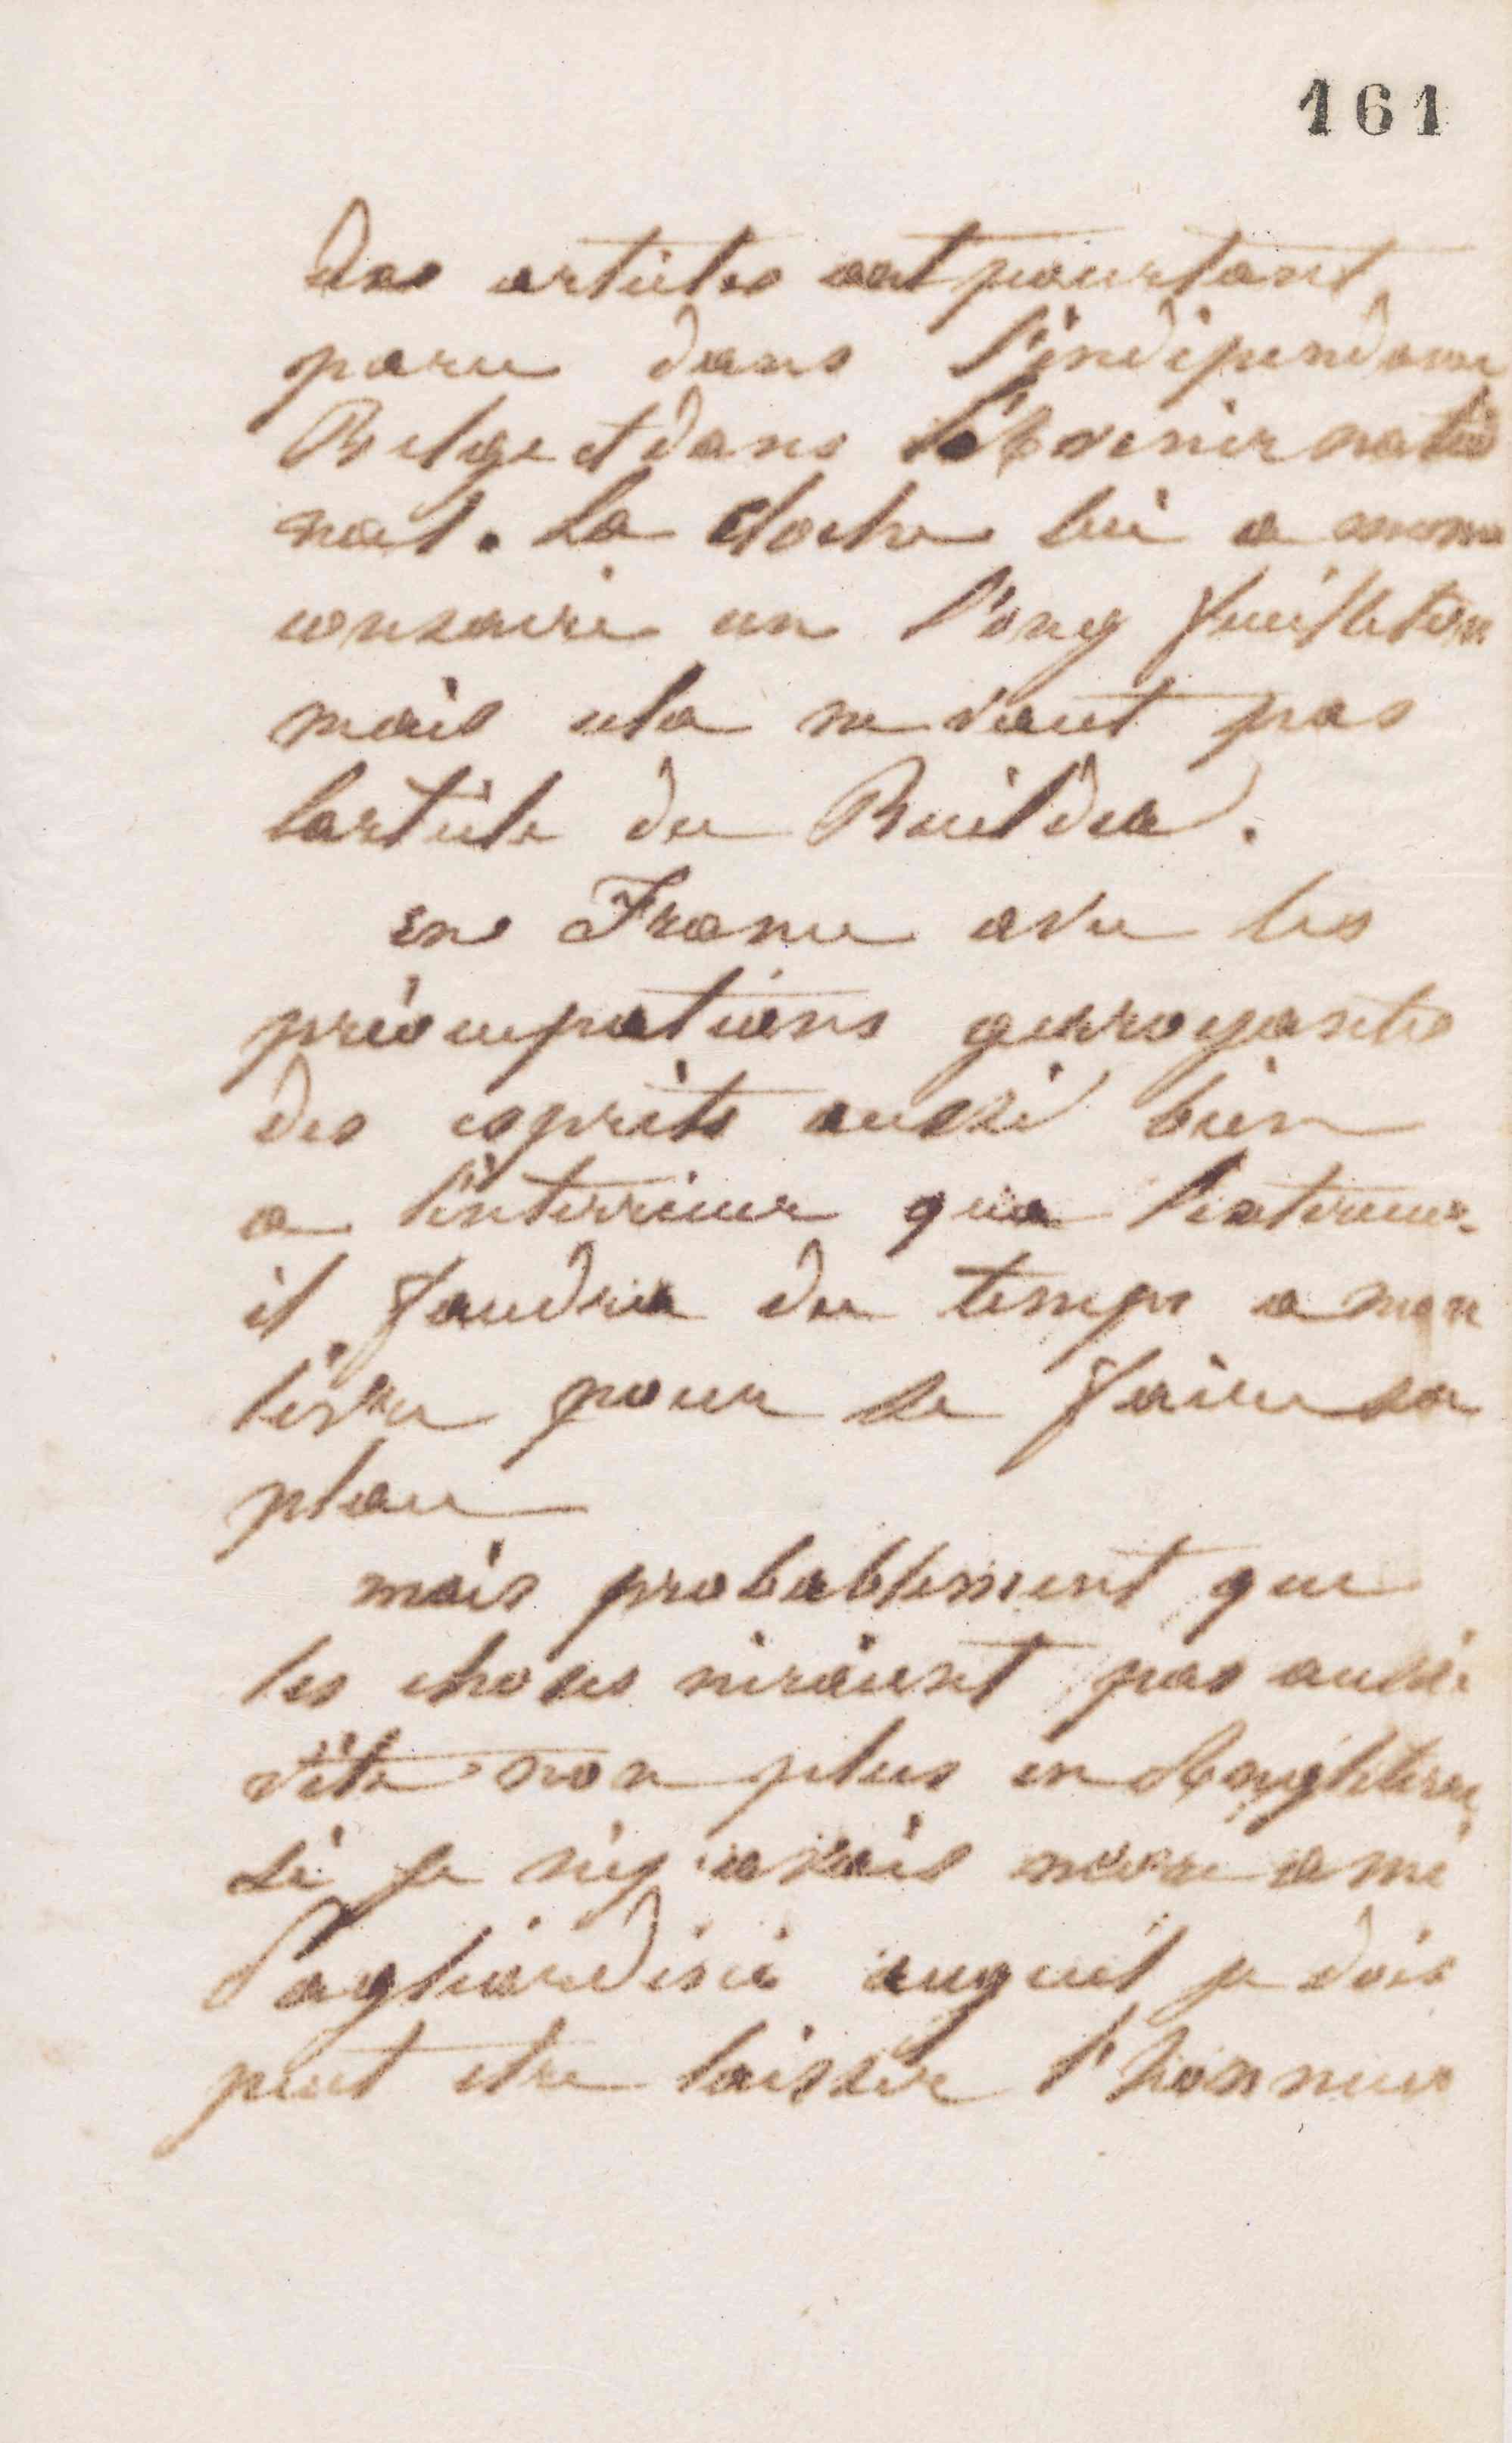 161
Des articles ont pourtant
paru dans l'indépendance
Belge et dans l'Avenir natio
nal. La cloche lui a meme
consacré un l'ong feuilleton
mais cela ne vaut pas
l'article du Builder.
en France avec les
préocupations guerroyantes
des esprits aussi bien
a l'interrieur qu'a l'exterieur
il faudra du temps a mon
livre pour se faire sa
place
mais probablement que
les choses n'iraient pas aussi
vite non plus en Angleterre
si je n'y avais mon ami
Pagliardini auquel je dois
peut etre laisser l'honneur